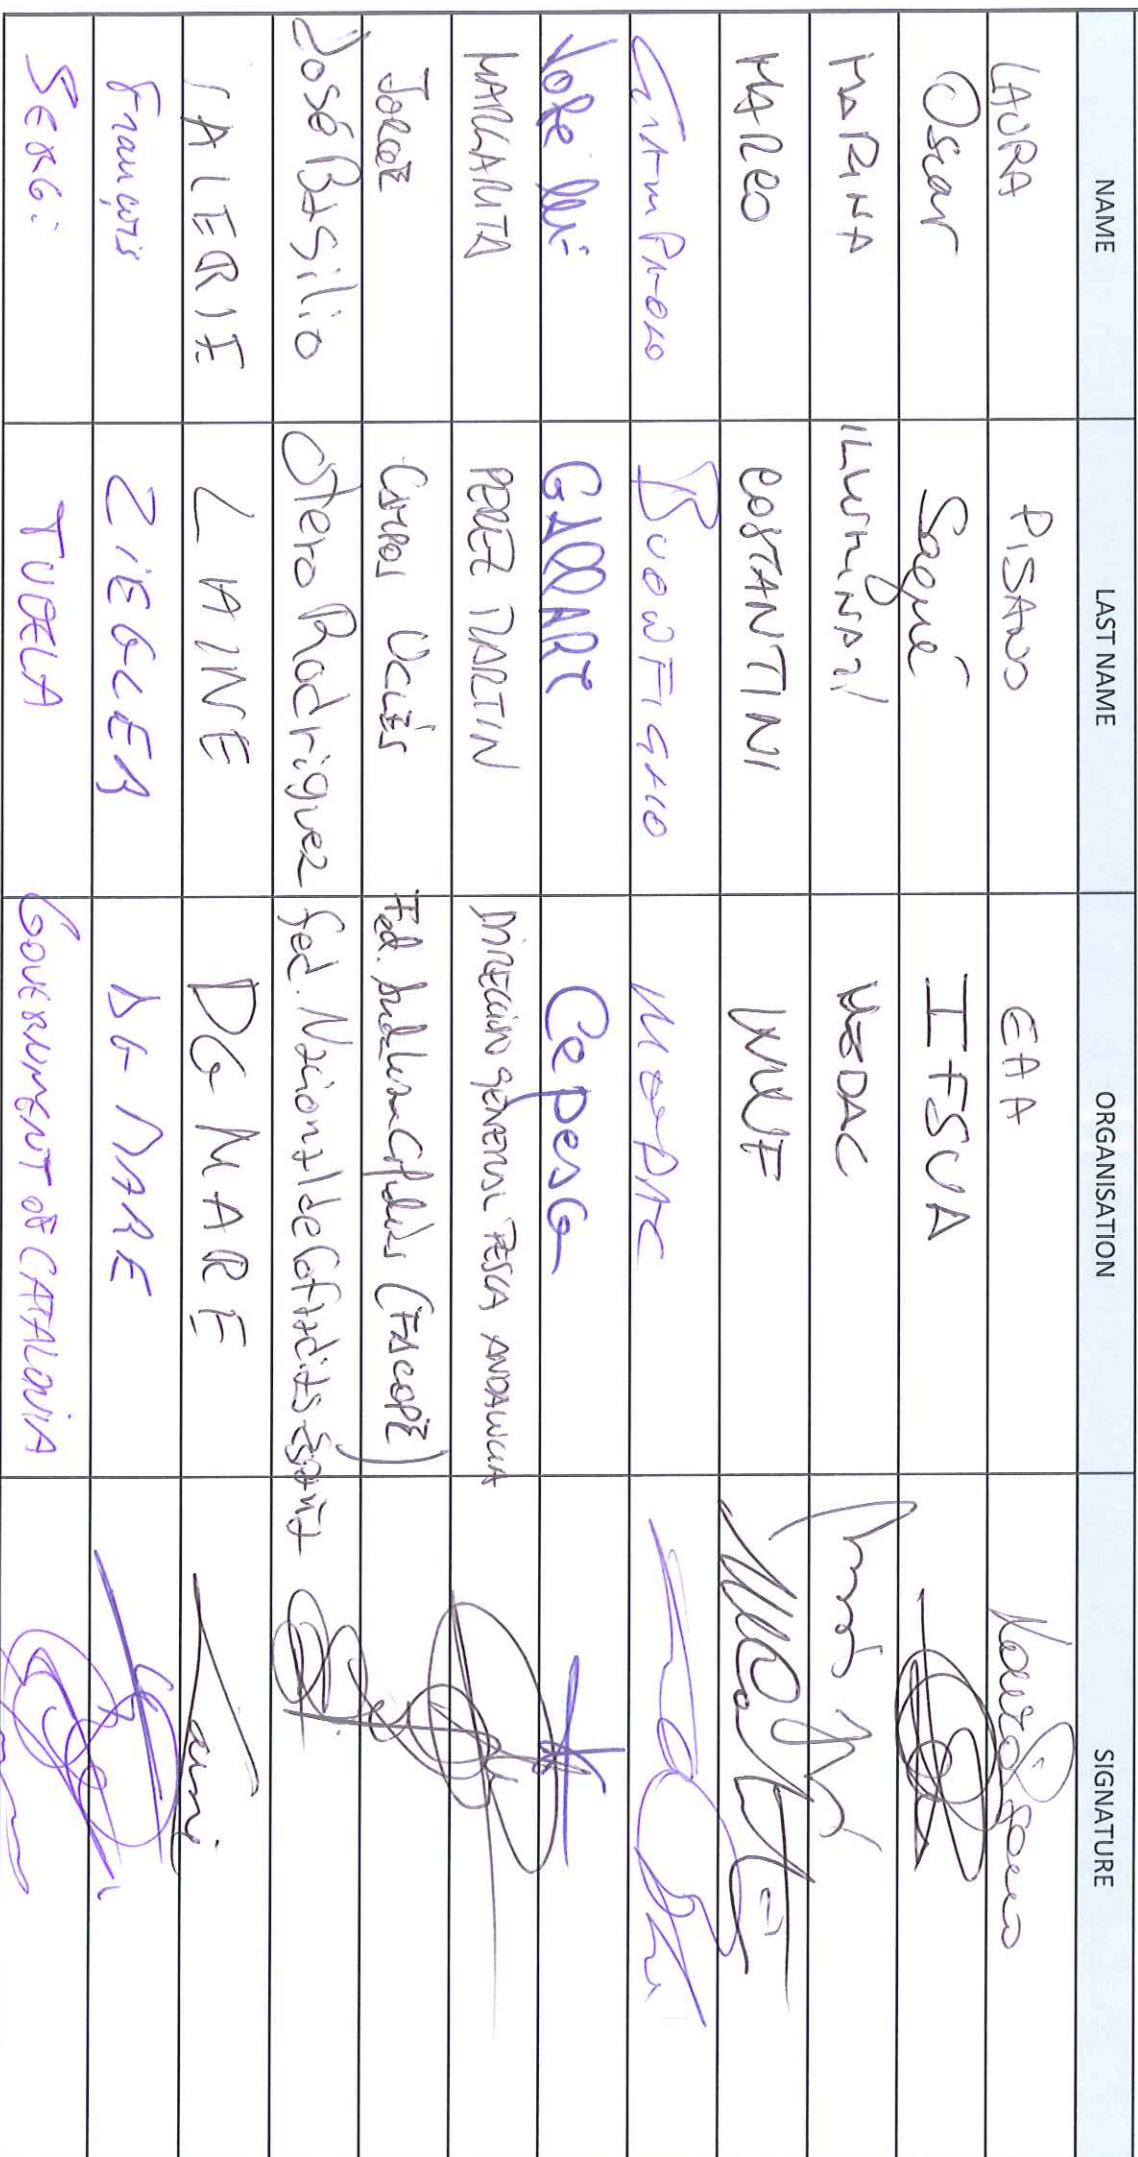 NAME LAST NAME ORGANISATION SIGNATURE
LAURA PISANO EAA
Oscar Sagué IFSUA
MARINA ILLUMINATI MEDAC
MARCO COSTANTINI WWF
GIAMPAOLO BUONFIGLIO MEDAC
GALLART Cepesca
MARGARITA PEREZ MARTIN DIRECCIÓN GENERAL PESCA ANDALUCIA
JORGE CAMPOS Fed. Andaluza Cofradías (FACOPE)
José Basilio Otero Rodriguez fed. Nacional de Cofradias España
VALERIE LAINE DG MARE
François ZIEGLER DG MARE
SERGI TUDELA GOVERNMENT OF CATALONIA